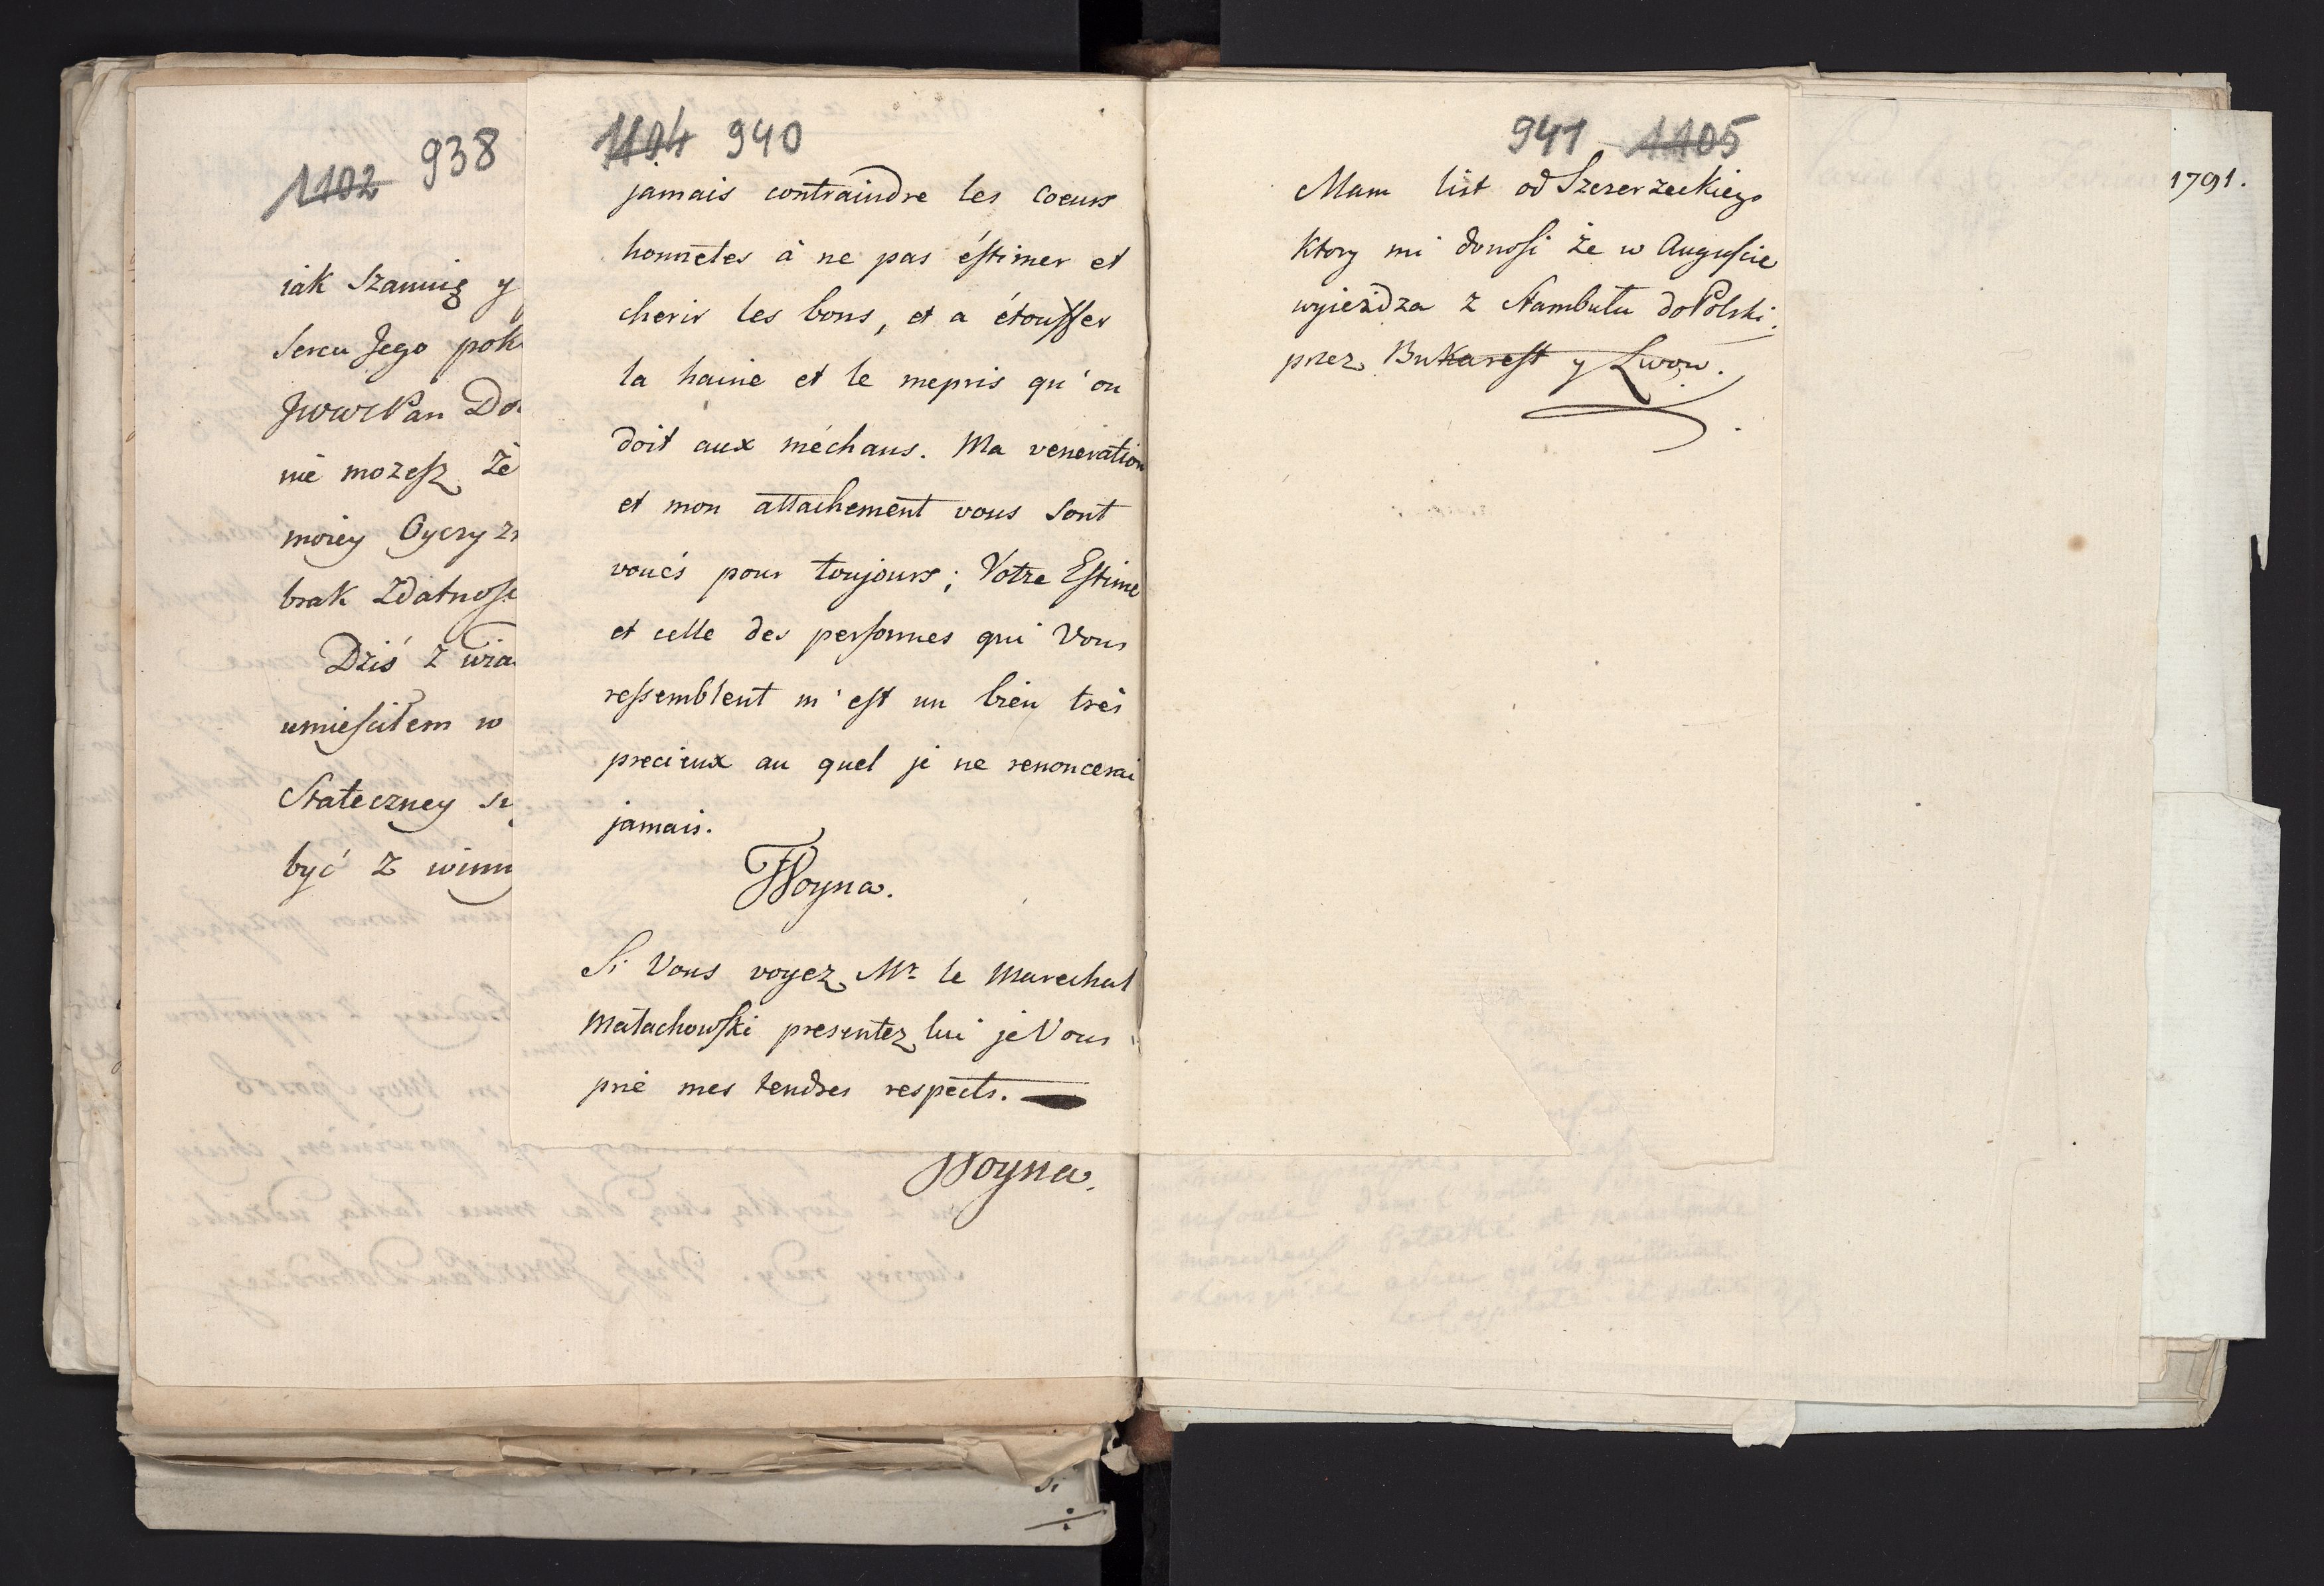 1102 938
iak Szanuię y
Sercu Jego pok
JWWPan Do
nie możesz że
moiey Oyczyzn
brak Zdatnośc
Dziś z wia
umieściłem w
Stateczney
być z winn
Woyna.
1104 940
jamais contraindre les coeurs
honnêtes à ne pas éstimer et
cherir les bons, et a étouffer
la haine et le mepris qu'on
doit aux méchans. Ma veneration
et mon attachement vous sont
voués pour toujours; Votre Estime
et celle des personnes qui Vous
ressemblent m'est un bien très
precieux au quel je ne renoncerai
jamais.
FWoyna.
Si Vous voyez Mr. le Marechal
Małachowski presentez lui je Vous
prie mes tendres respects.
941 1105
Mam list od Szczerzeckiego
Ktory mi donosi że w Auguście
wyieżdza z Stambułu do Polski
przez Bukarest y Lwow.
1791.